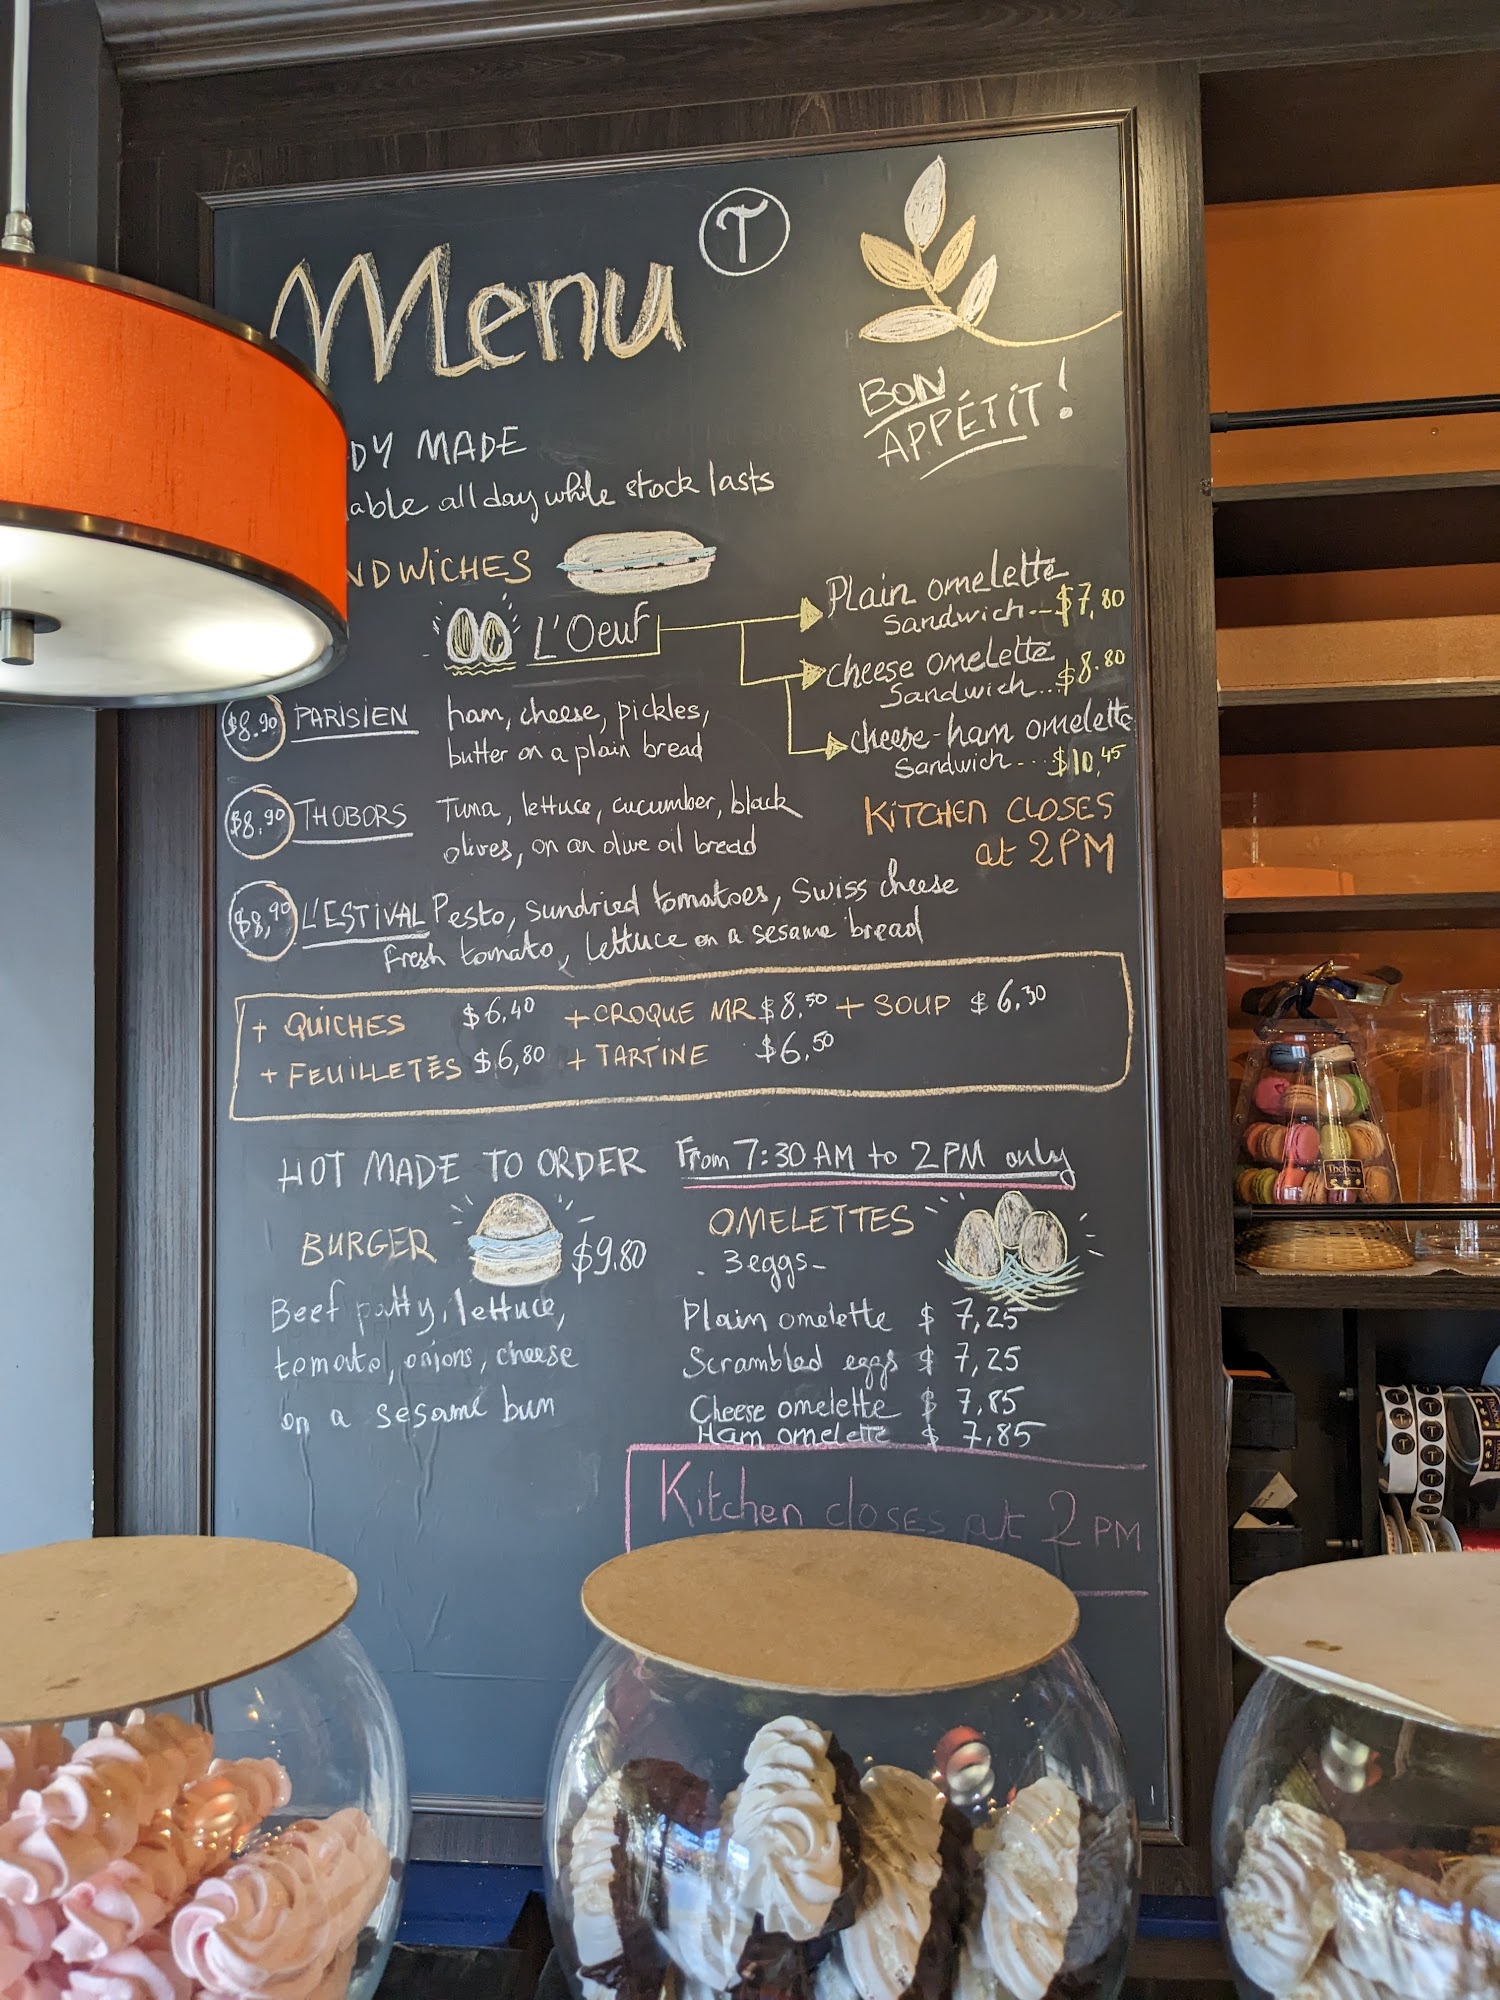 Menu
T
BON
APPÉTIT!
DY MADE
able all day while stock lasts
NDWICHES
L'Oeuf
Plain omelette
Sandwich--$7,80
cheese omelette
Sandwich...$8.80
cheese-ham omelette
Sandwich---$10,45
$8.90 PARISIEN ham, cheese, pickles,
butter on a plain bread
$8,90 THOBORS Tuna, lettuce, cucumber, black
olives, on an olive oil bread
KITCHEN CLOSES
at 2PM
$8,90 L'ESTIVAL Pesto, sundried tomatoes, Swiss cheese
Fresh tomato, lettuce on a sesame bread
+ QUICHES $6,40 + CROQUE MR $8,50 + SOUP $6,30
+ FEUILLETÉS $6,80 + TARTINE $6,50
HOT MADE TO ORDER From 7:30 AM to 2PM only
BURGER $9.80
Beef patty, lettuce,
tomato, onions, cheese
on a sesame bun
OMELETTES
- 3eggs-
Plain omelette $ 7,25
Scrambled eggs $ 7,25
Cheese omelette $ 7,85
Ham omelette $ 7,85
Kitchen closes at 2 PM